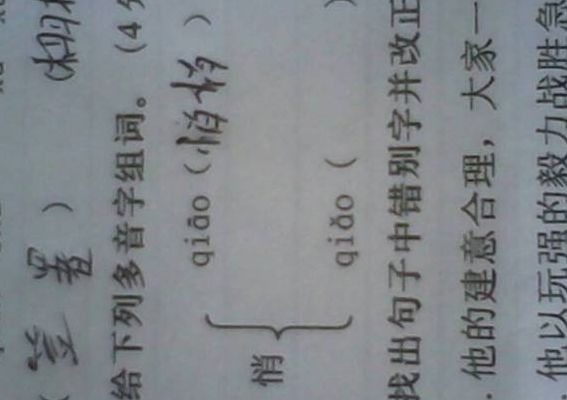 给下列多音字组词。(4
悄
qiāo(悄悄)
qiǎo(
)
找出句子中错别字并改正
.他的建意合理,大家一
他以玩强的毅力战胜急